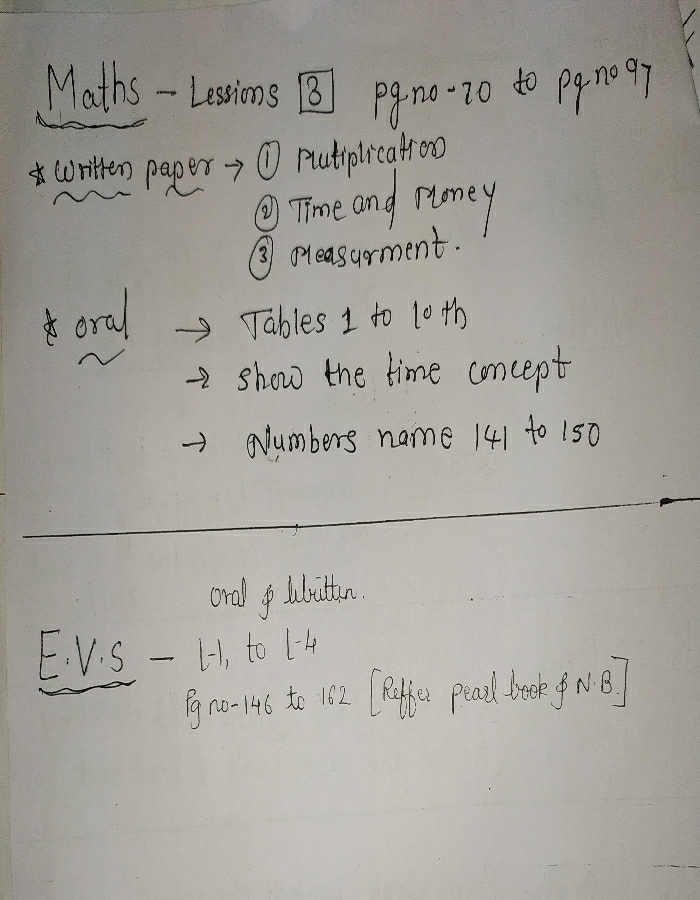 Maths - Lessions 3 pg.no-70 to pg.no 97
* Written paper → ① Mutiplication
② Time and Money
③ Measurment.
* oral → Tables 1 to 10th
→ Show the time concept
→ Numbers name 141 to 150
oral & Written.
E.V.S - L-1, to L-4
Pg no-146 to 162 [Reffer pearl book & N.B.]